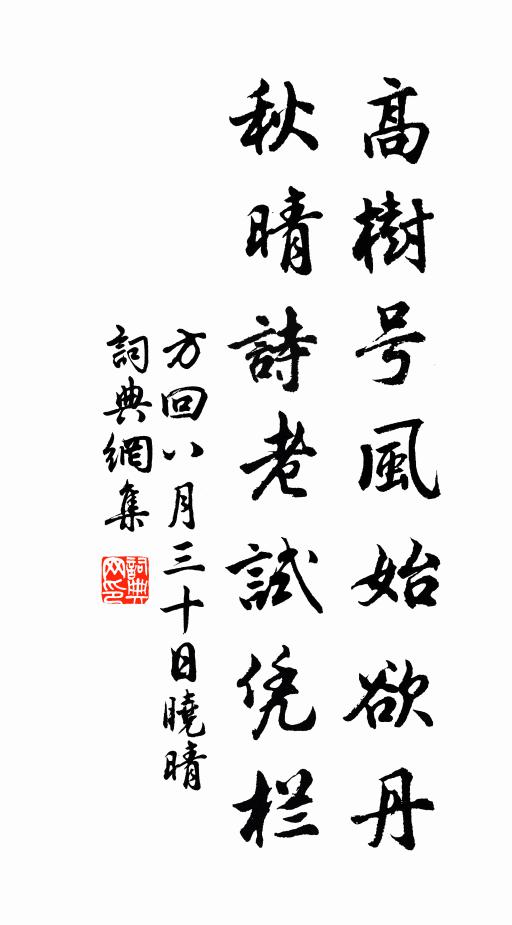 高樹号風始欲丹
秋晴詩老試凭栏
方回八月三十日曉晴
詞典網集
詞典网印